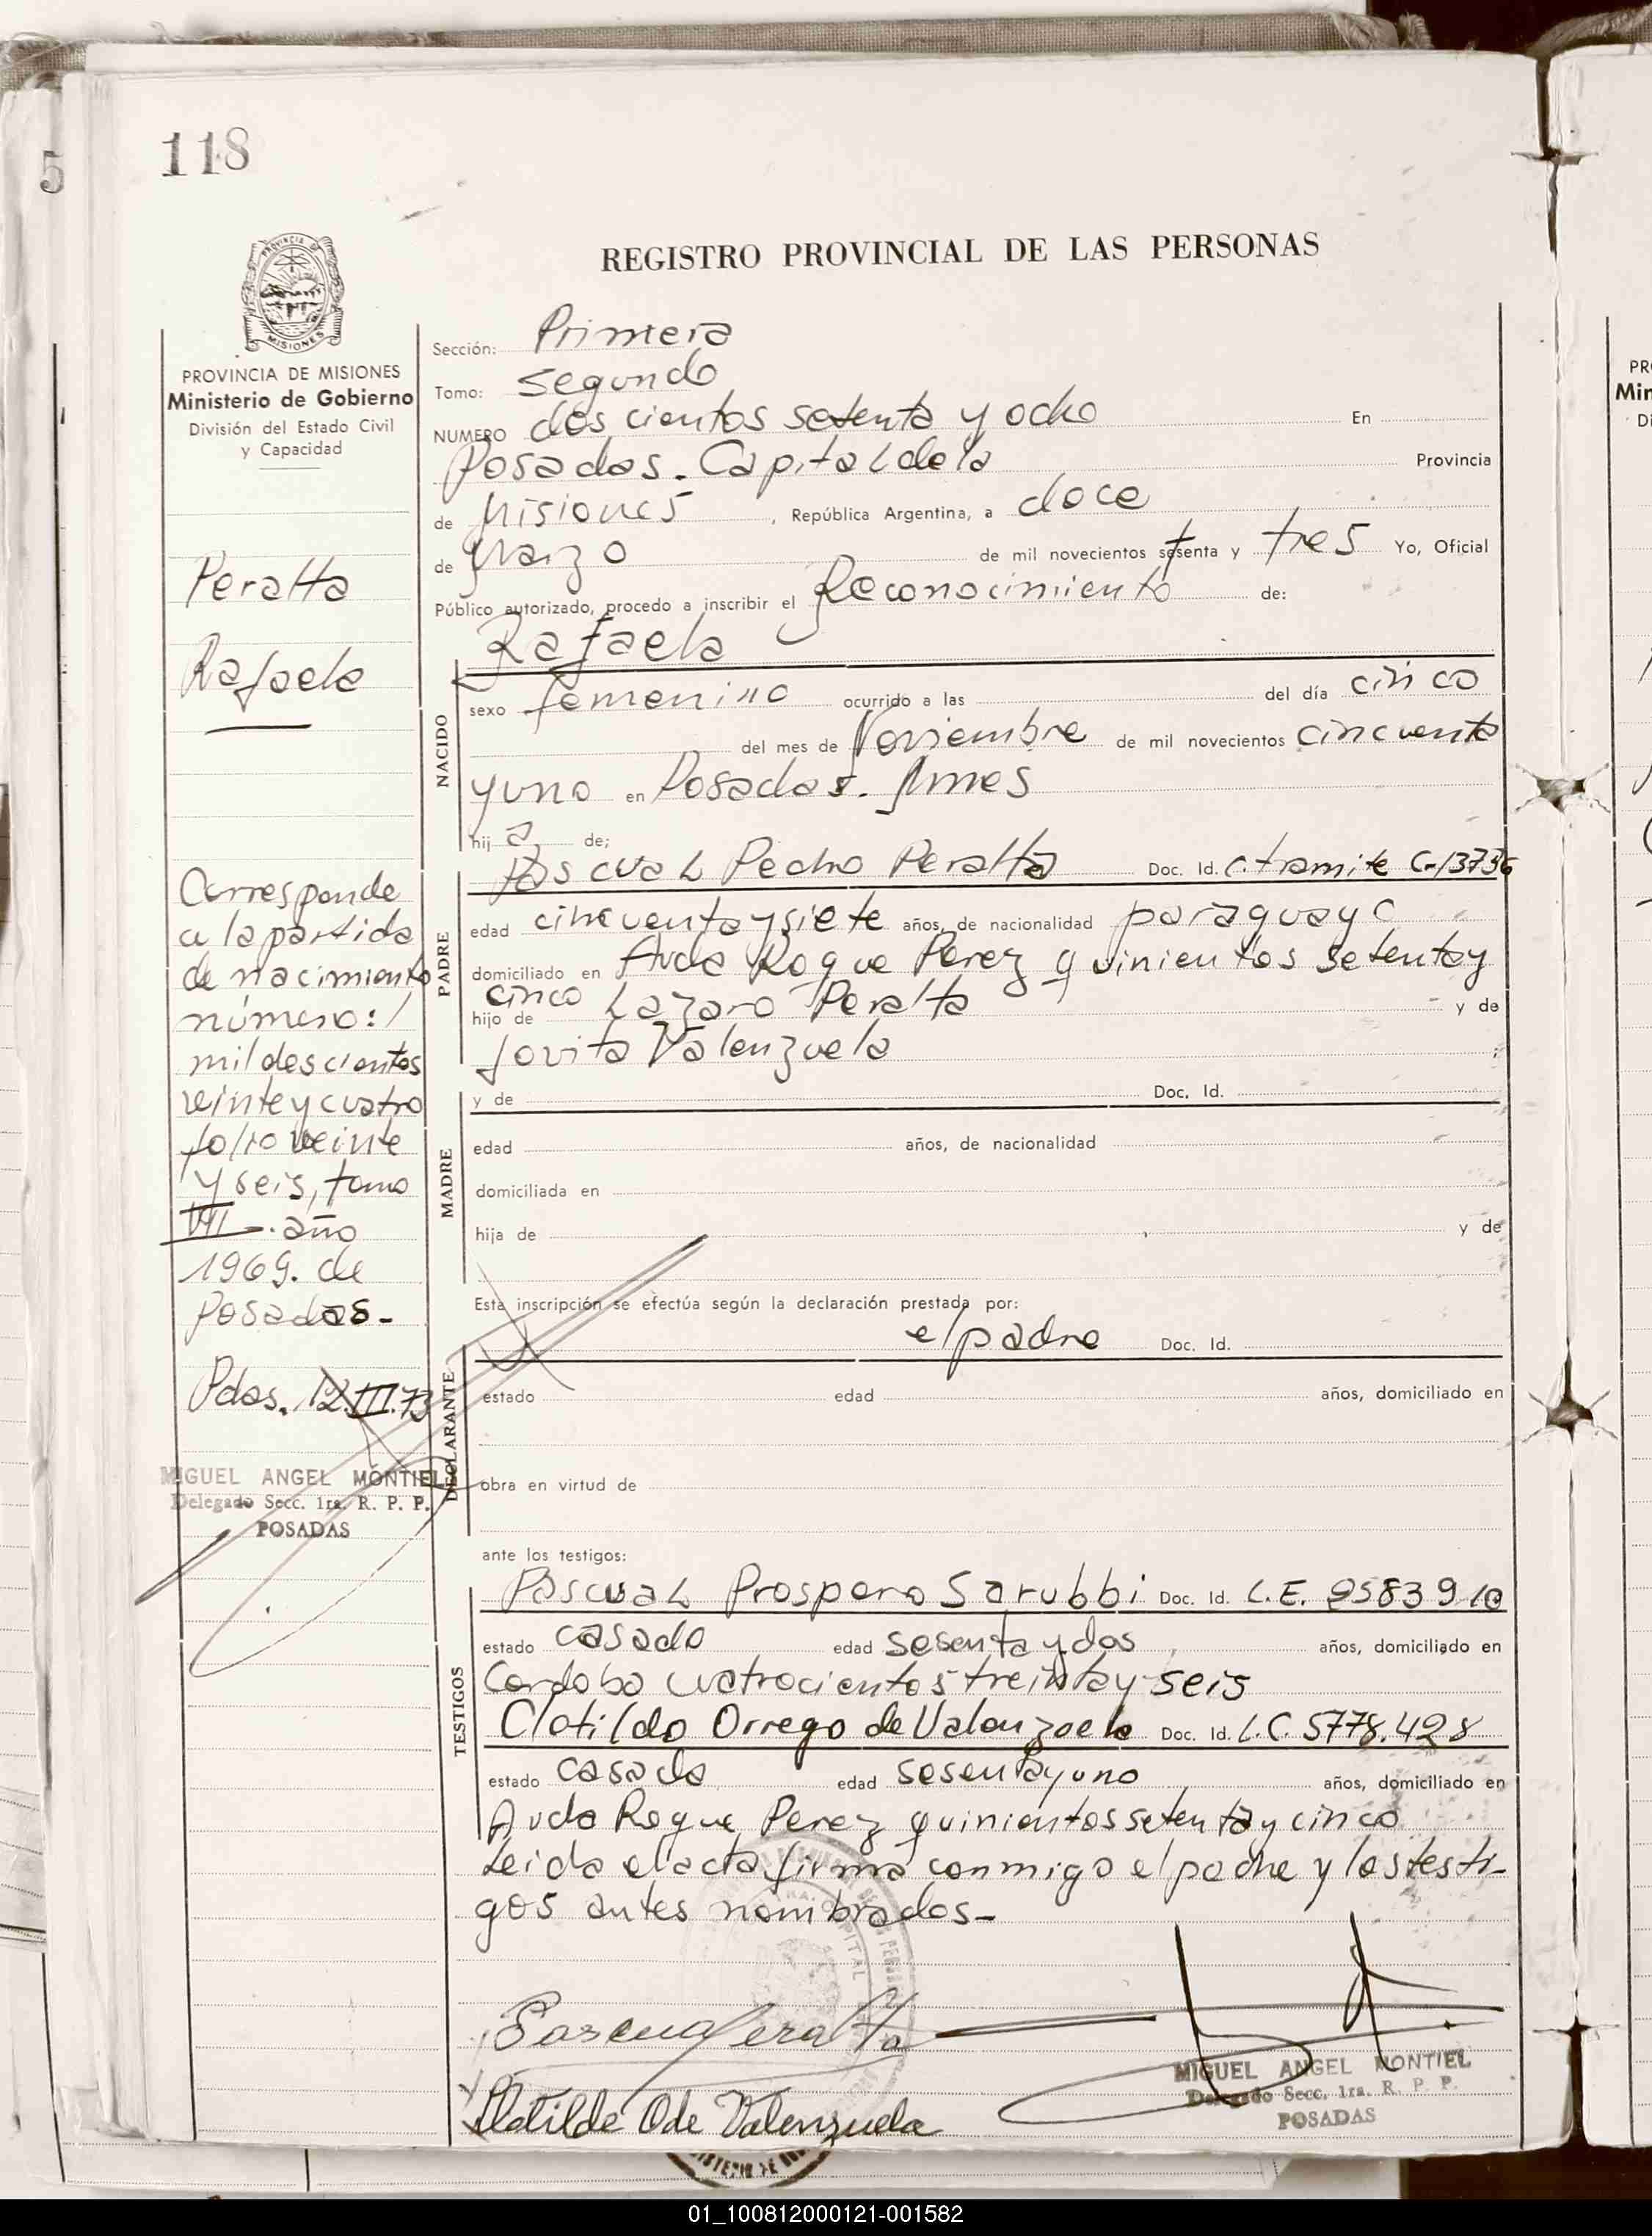 5
118
PROVINCIA DE MISIONES
Ministerio de Gobierno
División del Estado Civil
y Capacidad
Peralta
Rafaela
Corresponde
a la partida
de nacimiento
número:/
mil doscientos
veinte y cuatro
folio veinte
y seis, tomo
VII. año
1969. de
Posadas-
Pdas. 12.III.73
MIGUEL ANGEL MONTIEL
Delegado Secc. 1ra. R. P. P.
POSADAS
REGISTRO PROVINCIAL DE LAS PERSONAS
Sección: Primera
Tomo: Segundo
NUMERO dos cientos setenta y ocho En
Posadas. Capital de la Provincia
de Misiones, República Argentina, a doce
de Marzo de mil novecientos setenta y tres Yo, Oficial
Público autorizado, procedo a inscribir el Reconocimiento de:
Rafaela
NACIDO
sexo femenino ocurrido a las del día cinco
del mes de Noviembre de mil novecientos cincuenta
y uno en Posadas. Mnes
hija de;
PADRE
Pascual Pedro Peralta Doc. Id. C. tramite C-13736
edad cincuenta y siete años, de nacionalidad paraguaya
domiciliado en Avda Roque Perez quinientos setenta y
cinco
hijo de Lazaro Peralta y de
Jovita Valenzuela ;
MADRE
y de Doc. Id.
edad años, de nacionalidad
domiciliada en
hija de y de
Esta inscripción se efectúa según la declaración prestada por:
el padre Doc. Id.
DECLARANTE
estado edad años, domiciliado en
obra en virtud de
ante los testigos:
TESTIGOS
Pascual Prospero Sarubbi Doc. Id. L.E.
estado casado edad sesenta y dos años, domiciliado en
Cordoba cuatrocientos treinta y seis
Clotilde Orrego de Valenzuela Doc. Id. L.C. 5778.428
estado casada edad sesenta y uno años, domiciliado en
Avda Roque Perez quinientos setenta y cinco
Leida el acta firma conmigo el padre y los testi-
gos antes nombrados-
Pascual Peralta
Clotilde O de Valenzuela
MIGUEL ANGEL MONTIEL
Delegado Secc. 1ra. R. P. P.
POSADAS
01_100812000121-001582